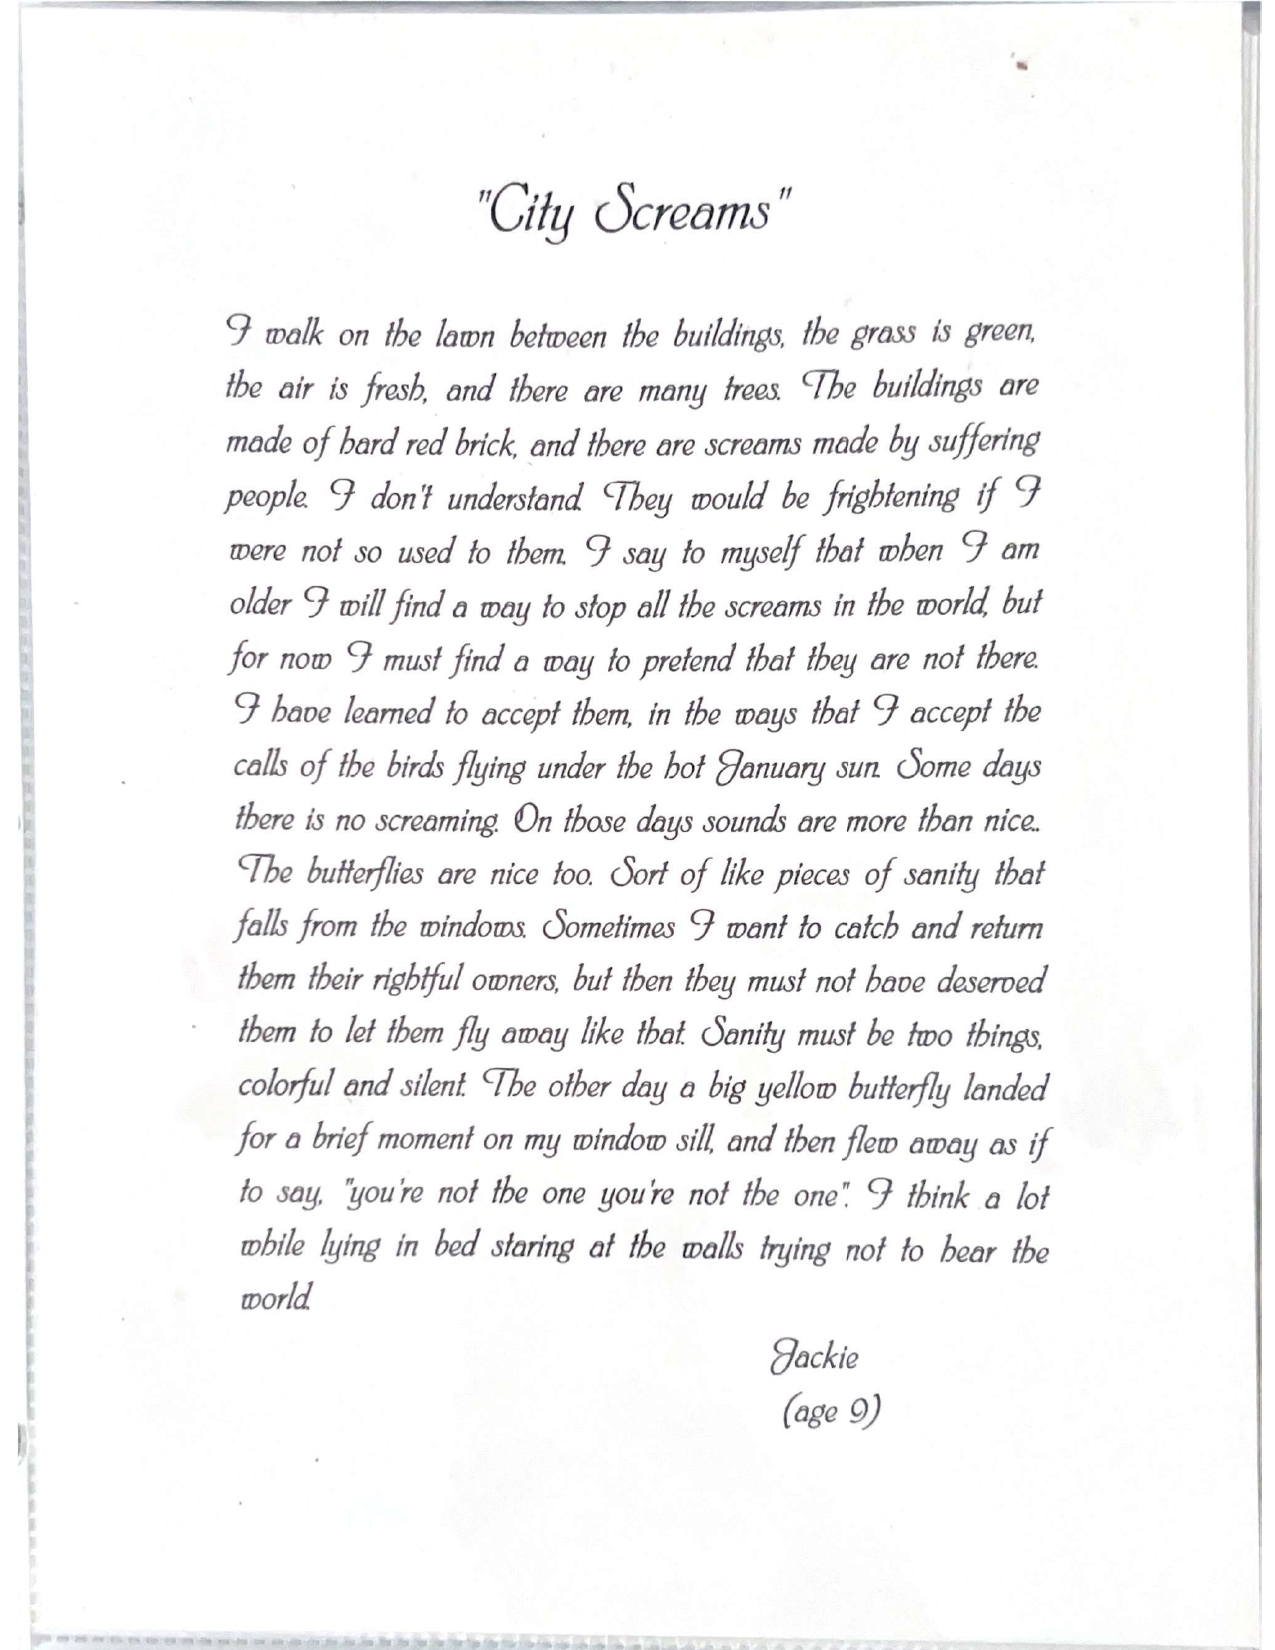 "City Screams"
I walk on the lawn between the buildings, the grass is green,
the air is fresh, and there are many trees. The buildings are
made of hard red brick, and there are screams made by suffering
people. I don't understand. They would be frightening if I
were not so used to them. I say to myself that when I am
older I will find a way to stop all the screams in the world, but
for now I must find a way to pretend that they are not there.
I have learned to accept them, in the ways that I accept the
calls of the birds flying under the hot January sun. Some days
there is no screaming. On those days sounds are more than nice..
The butterflies are nice too. Sort of like pieces of sanity that
falls from the windows. Sometimes I want to catch and return
them their rightful owners, but then they must not have deserved
them to let them fly away like that. Sanity must be two things,
colorful and silent. The other day a big yellow butterfly landed
for a brief moment on my window sill, and then flew away as if
to say, "you're not the one you're not the one". I think a lot
while lying in bed staring at the walls trying not to hear the
world.
Jackie
(age 9)